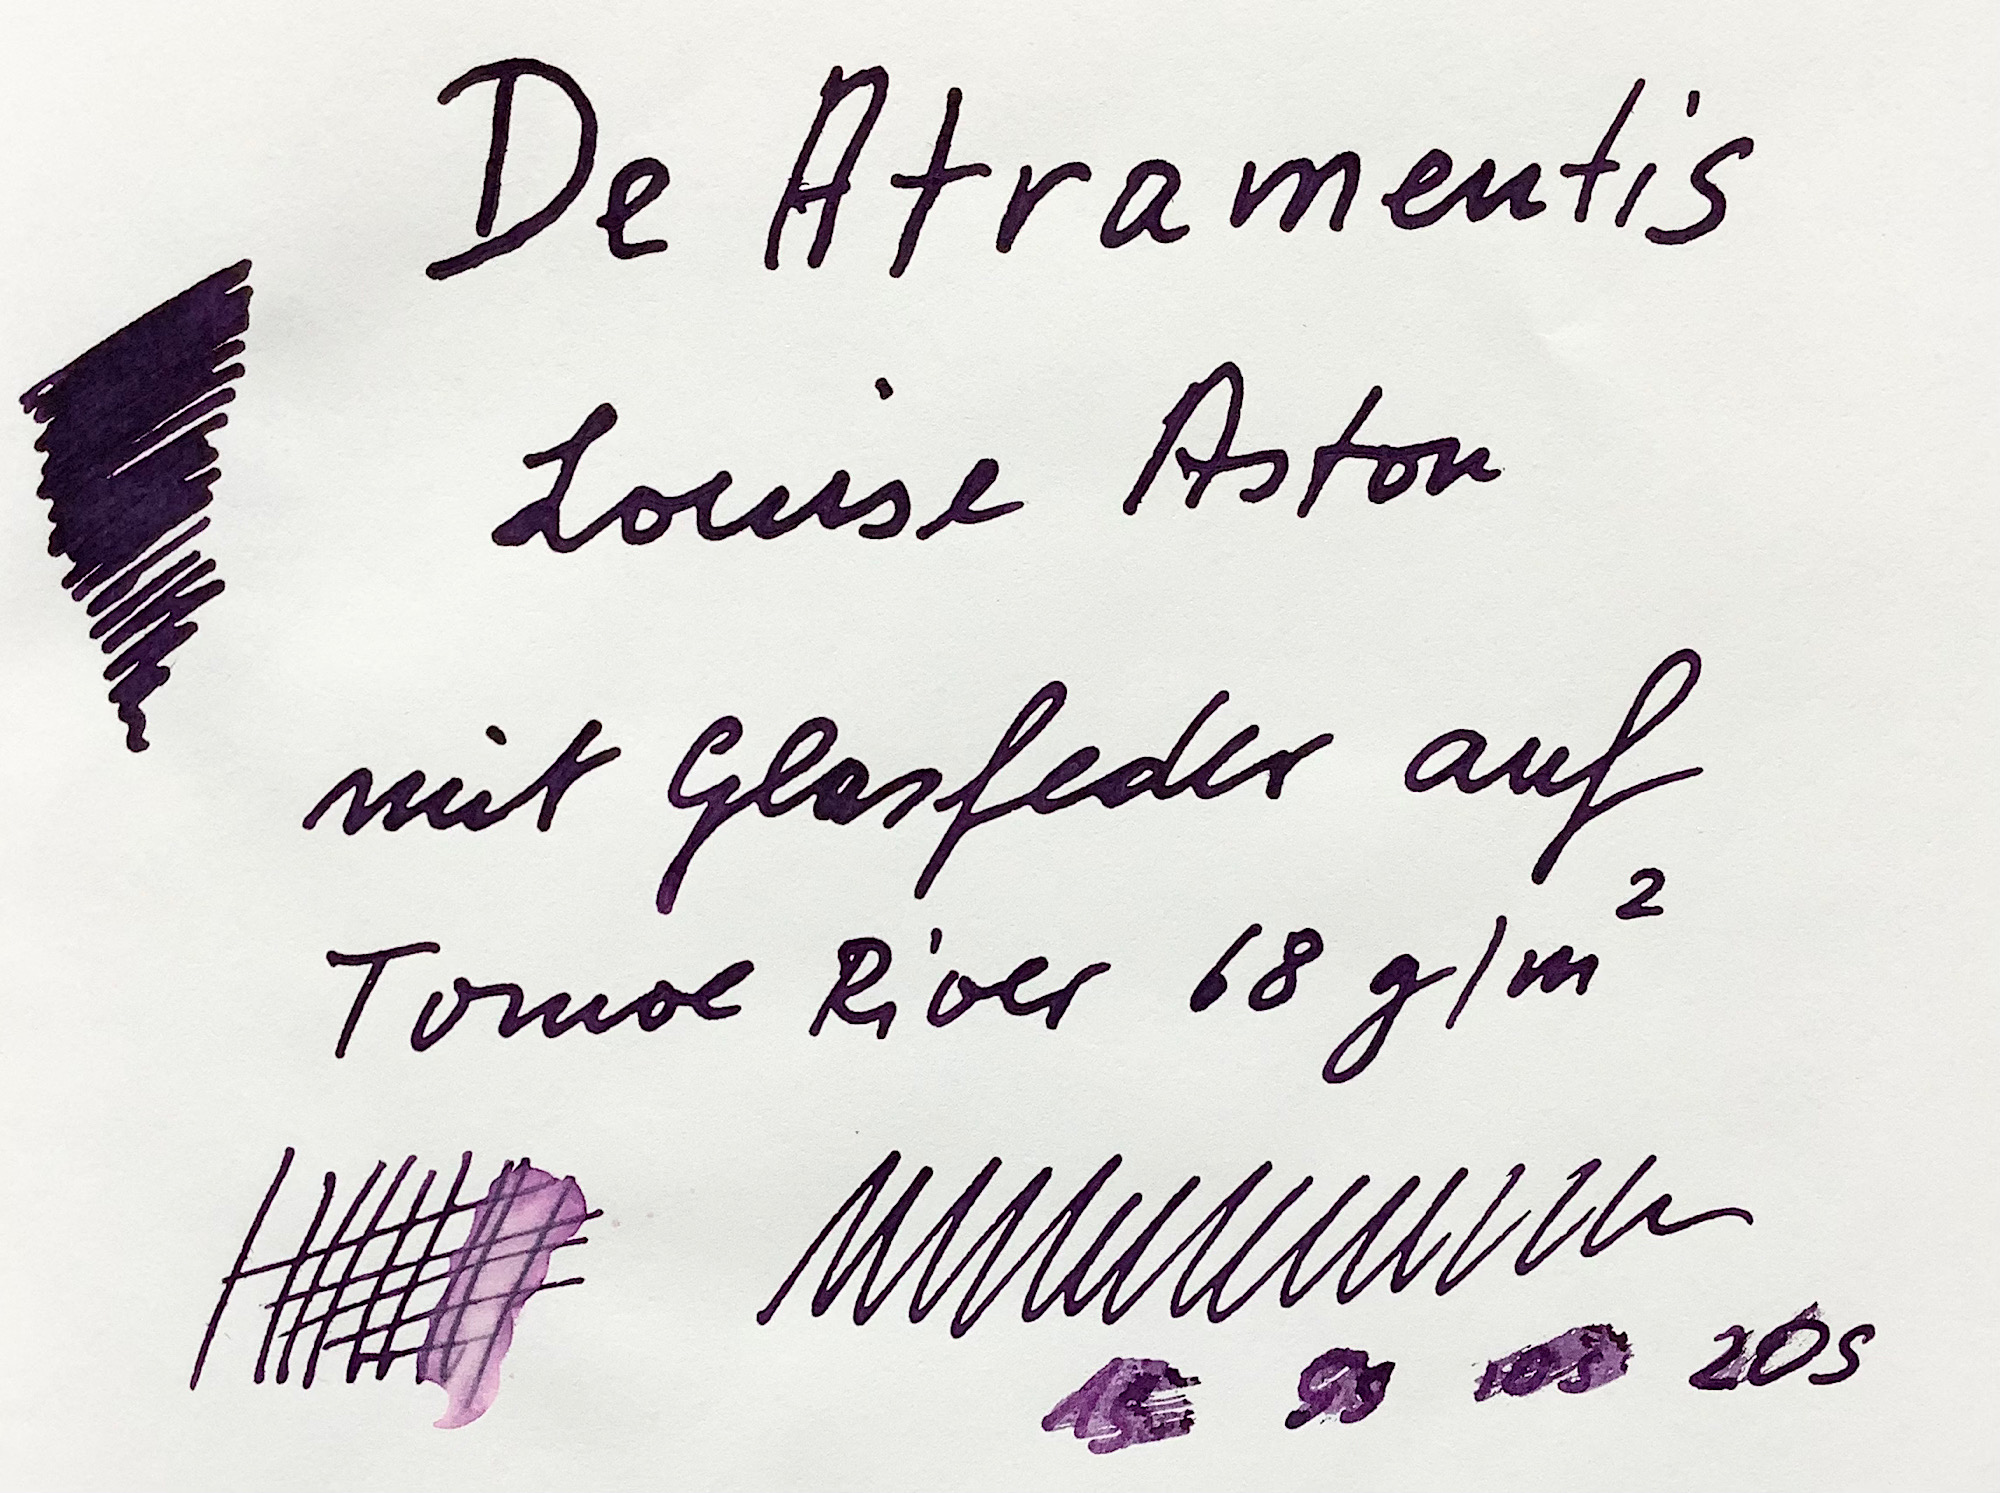 De Atramentis
Louise Aston
mit Glasfeder auf
Tomoe River 68 g/m²
1s 9s 10s 20s